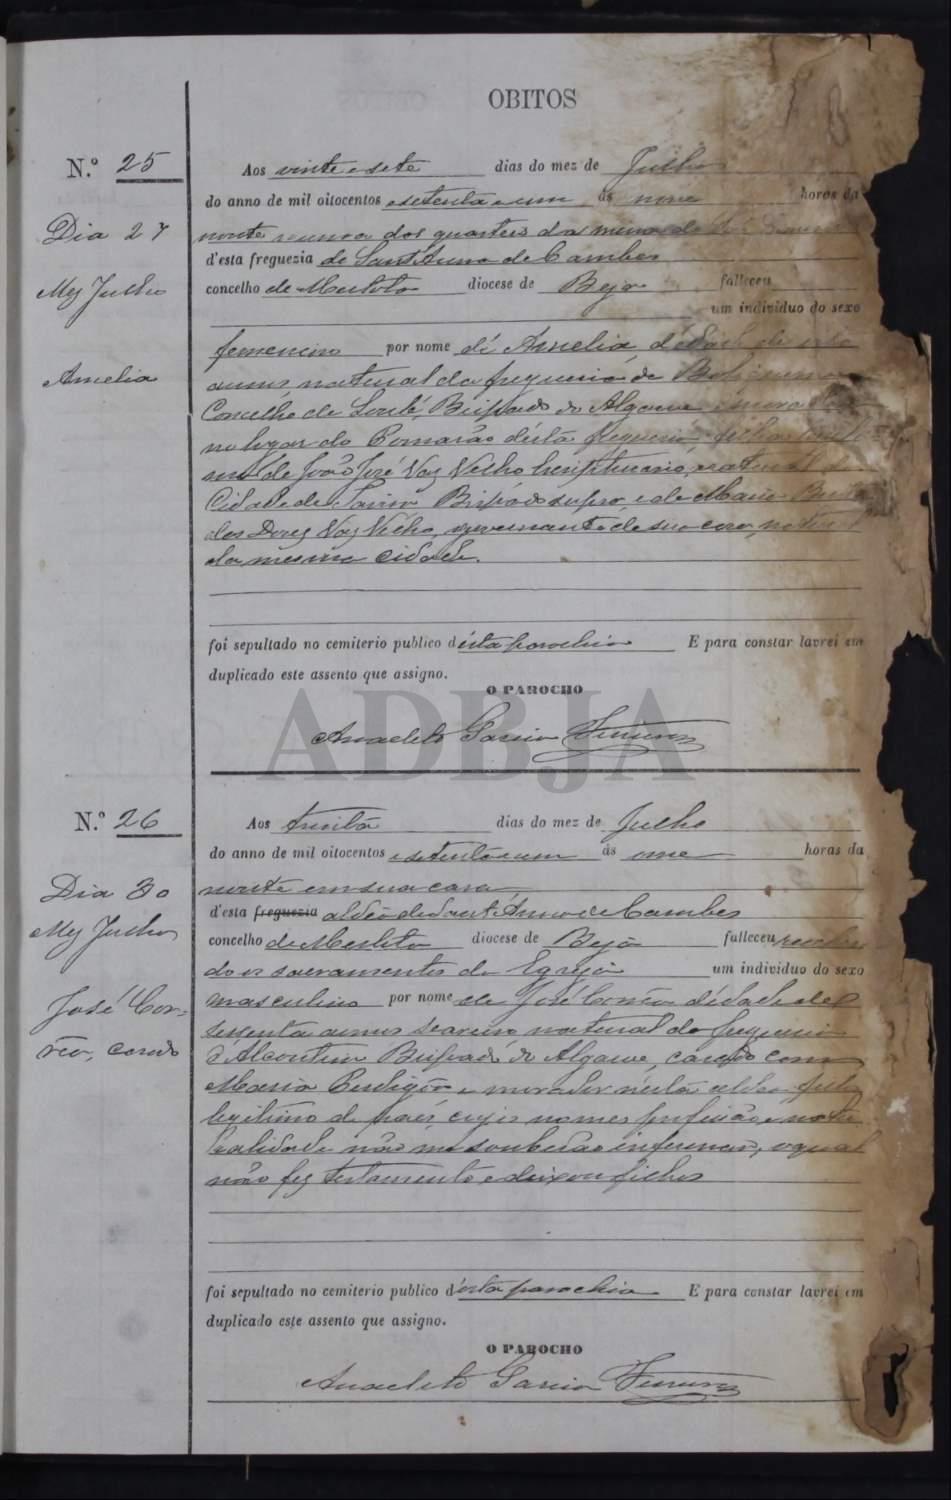 OBITOS
N.º 25
Dia 27
Mez Julho
Amelia
Aos vinte e sete dias do mez de Julho
do anno de mil oitocentos e setenta e um ás nove horas da
noute n'uma dos quarteis da mina de São
d'esta freguezia de Sant'Anna de Cambas
concelho de Mertola diocese de Beja falleceu
um individuo do sexo
femenino por nome dé Amelia d'idade de oito
annos natural da freguezia de Boliqueme
Concelho de Loulé, Bispado do Algarve e mora
no logar do Pomarão d'esta freguezia filha
de João José Vaz Velho natural
Cidade de Tavira Bispado supra, e de Maria
das Dores Vaz Velho, governante de sua casa, natural
da mesma cidade.
foi sepultado no cemiterio publico d'esta parochia E para constar lavrei em
duplicado este assento que assigno.
O PAROCHO
Anacleto Garcia
ADBJA
N.º 26
Dia 30
Mez Julho
José Cor-
rêa, casado
Aos trinta dias do mez de Julho
do anno de mil oitocentos e setenta e um ás onze horas da
noute em sua casa
d'esta freguezia aldêa de Sant'Anna de Cambas
concelho de Mertola diocese de Beja falleceu receben
do os sacramentos da Egreja um individuo do sexo
masculino por nome de José Corrêa d'idade de
sessenta annos seareiro natural da freguezia
d'Alcoutim Bispado do Algarve, casado com
Maria Perdigôa e morador n'esta aldea filho
legitimo de paes cujos nomes profissão e natu
ralidade não me souberão informar, o qual
não fez testamento e deixou filhos
foi sepultado no cemiterio publico d'esta parochia E para constar lavrei em
duplicado este assento que assigno.
O PAROCHO
Anacleto Garcia